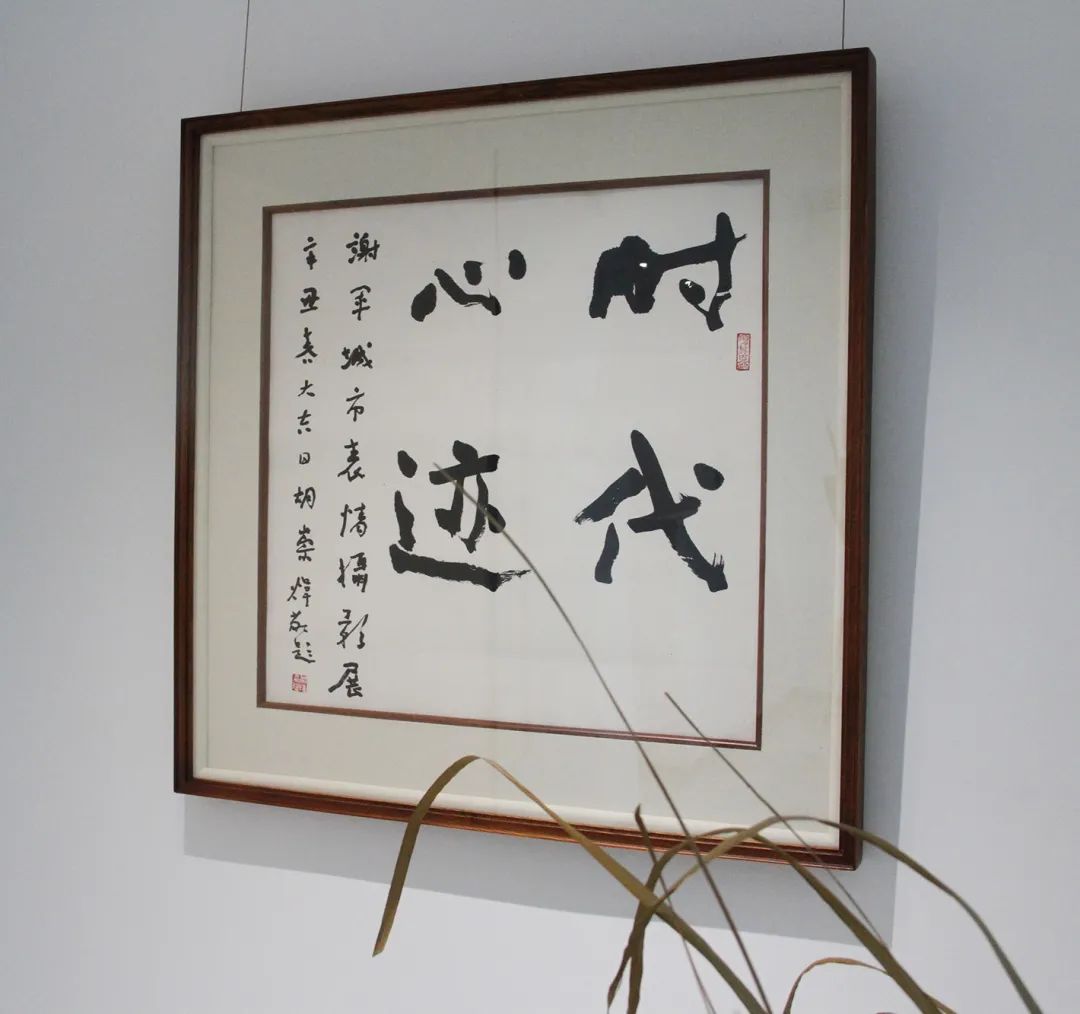 时代
心迹
謝军城市表情攝影展
辛丑春大吉日胡崇煒敬题